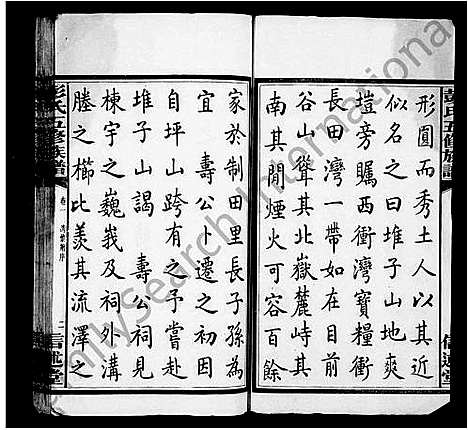 形圓而秀土人以其近
似名之曰堆子山地爽
塏旁矚西衝灣寶糧衝
長田灣一帶如在目前
谷山聳其北嶽麓峙其
南其間煙火可容百餘
家於制田里長子孫為
宜 壽公卜遷之初衍
自坪山跨有之予嘗赴
堆子山謁 壽公祠見
棟宇之巍峩及祠外溝
塍之櫛比羨其流澤之
彭氏五修族譜
卷一
二
信述堂
彭氏五修族譜
信述堂
FamilySearch International